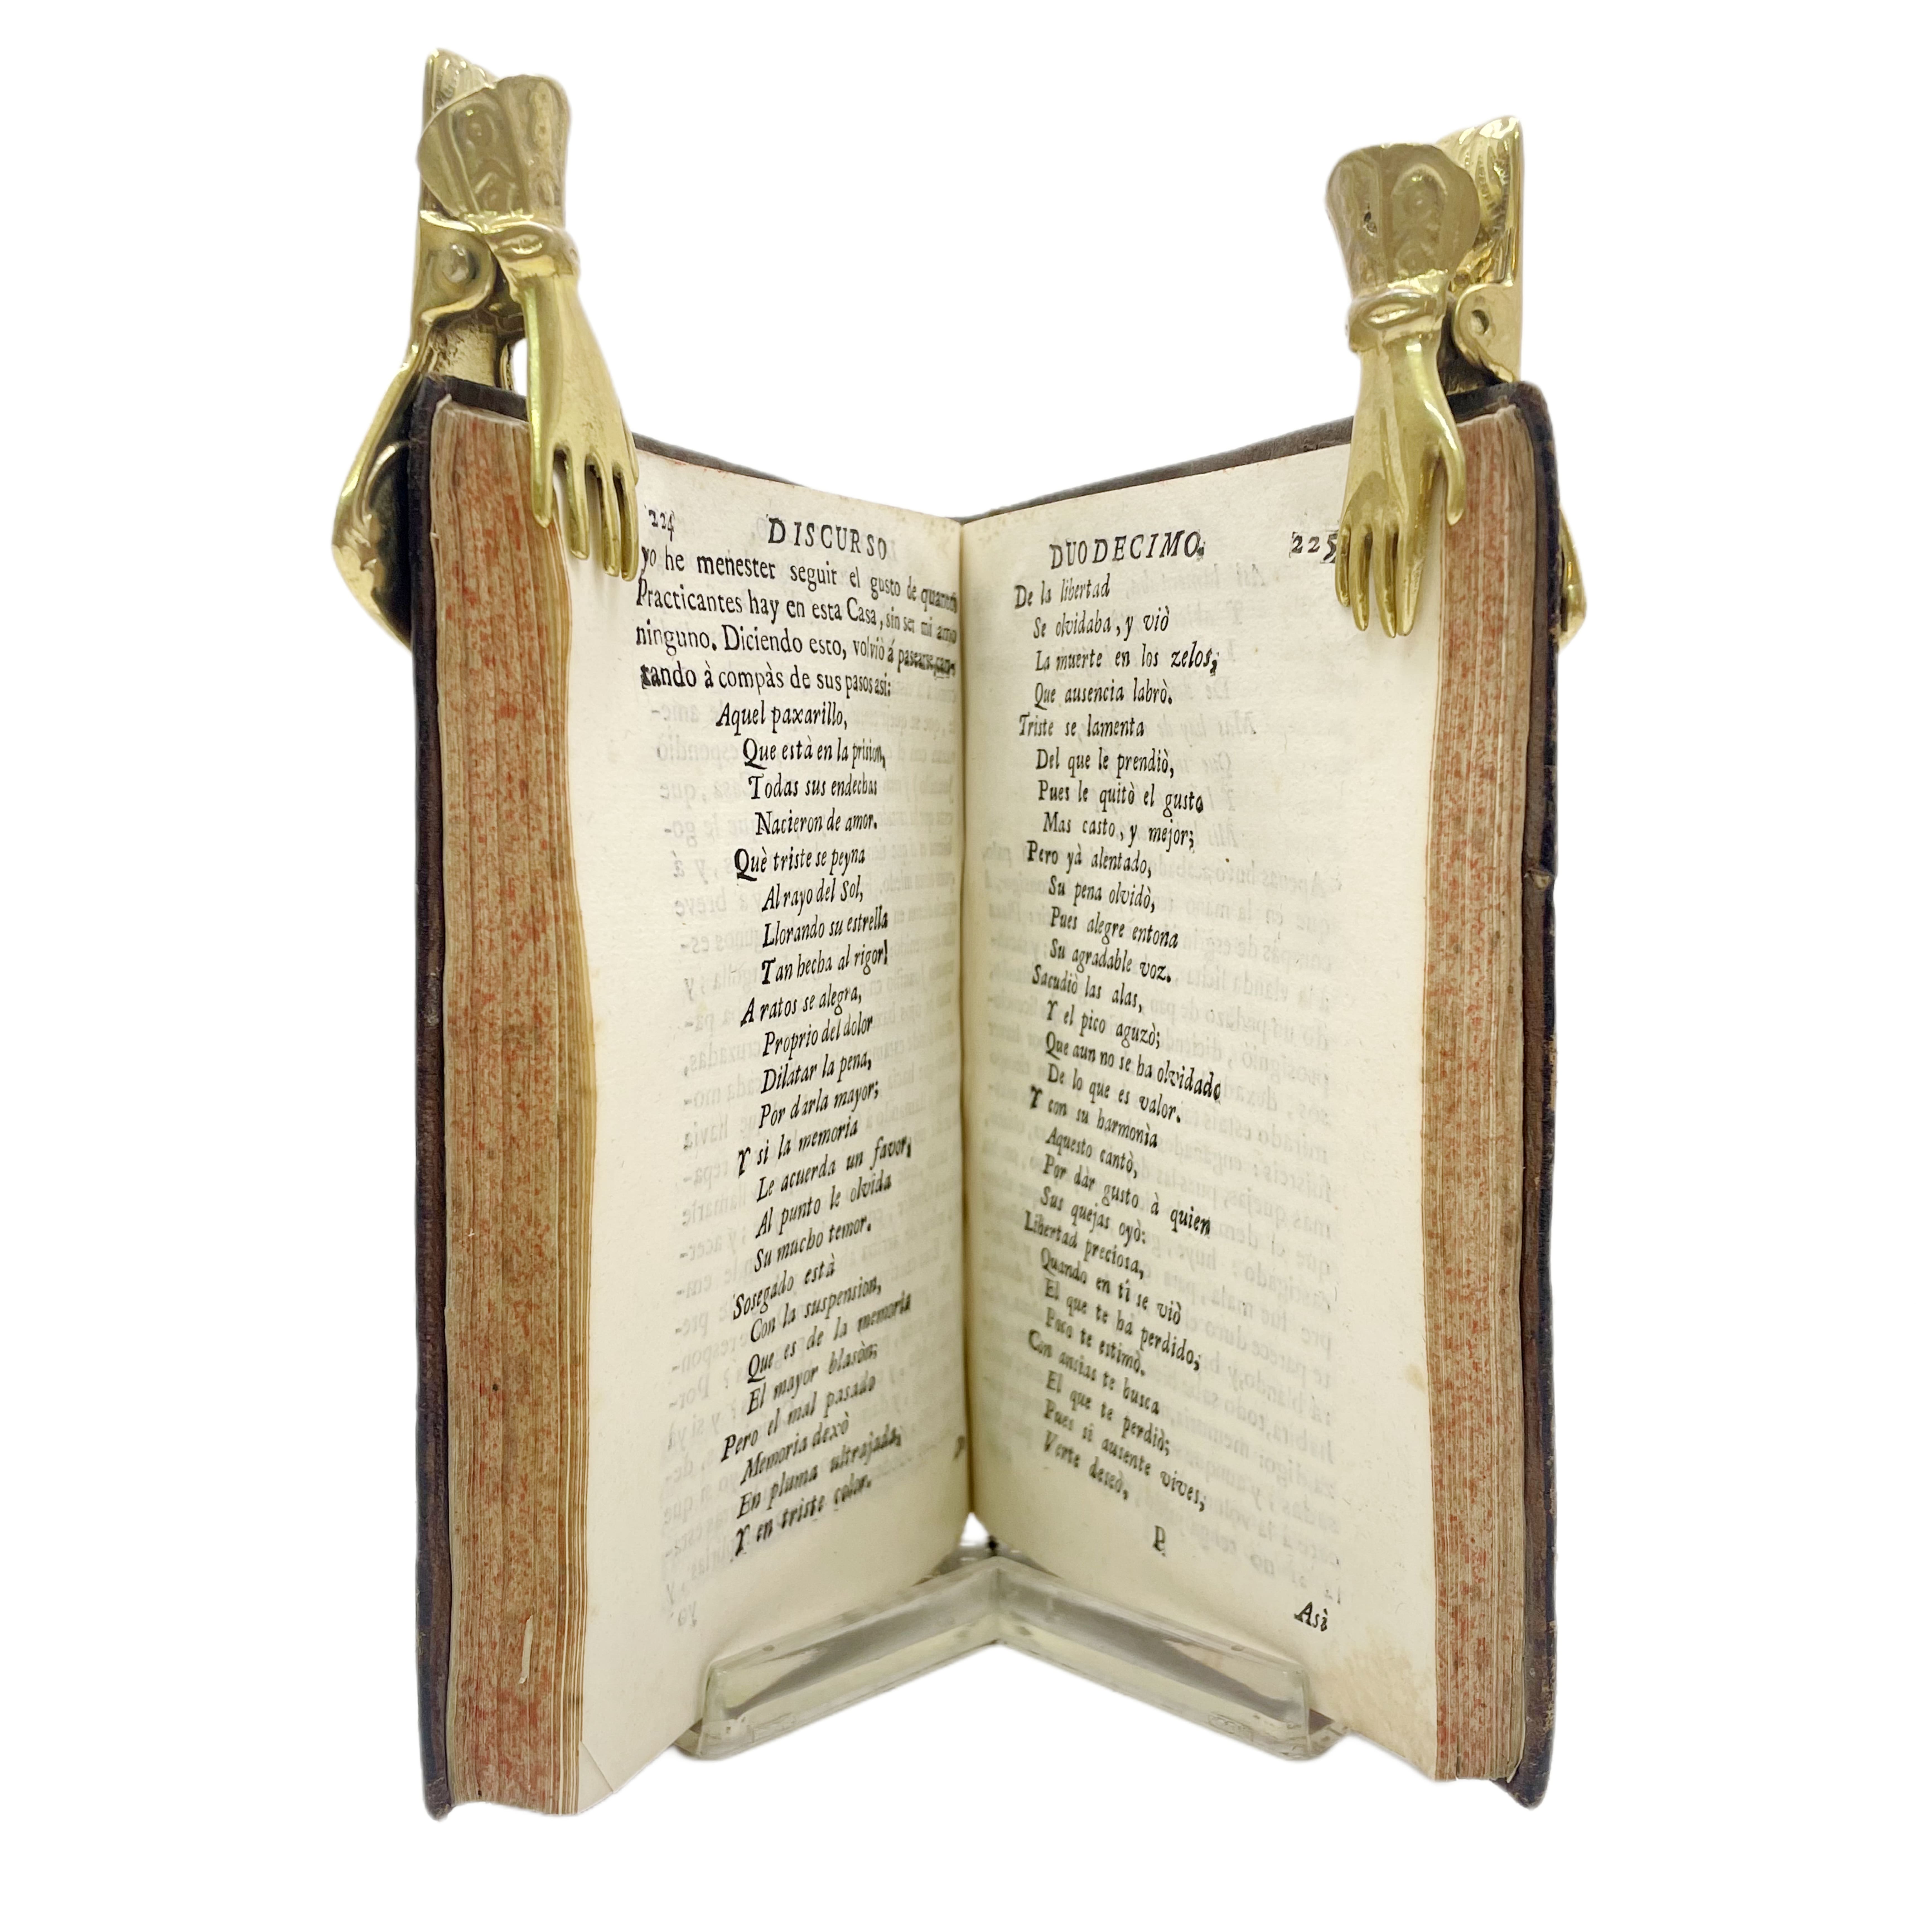 224 DISCURSO
yo he menester seguir el gusto de quantos
Practicantes hay en esta Casa, sin ser mi amo
ninguno. Diciendo esto, volviò á pasearse, can-
tando à compàs de sus pasos asi:
Aquel paxarillo,
Que està en la prision,
Todas sus endechas
Nacieron de amor.
Què triste se peyna
Al rayo del Sol,
Llorando su estrella
Tan hecha al rigor!
A ratos se alegra,
Proprio del dolor
Dilatar la pena,
Por darla mayor;
Y si la memoria
Le acuerda un favor,
Al punto le olvida
Su mucho temor.
Sosegado està
Con la suspension,
Que es de la memoria
El mayor blasòn;
Pero el mal pasado
Memoria dexò
En pluma ultrajada,
Y en triste color.
DUODECIMO. 225
De la libertad
Se olvidaba, y viò
La muerte en los zelos,
Que ausencia labrò.
Triste se lamenta
Del que le prendiò,
Pues le quitò el gusto
Mas casto, y mejor;
Pero yà alentado,
Su pena olvidò,
Pues alegre entona
Su agradable voz.
Sacudiò las alas,
Y el pico aguzò;
Que aun no se ha olvidado
De lo que es valor.
Y con su harmonìa
Aquesto cantò,
Por dàr gusto à quien
Sus quejas oyò:
Libertad preciosa,
Quando en tì se viò
El que te hà perdido,
Poco te estimò.
Con ansias te busca
El que te perdiò;
Pues si ausente vives,
Verte deseò,
P
Asì